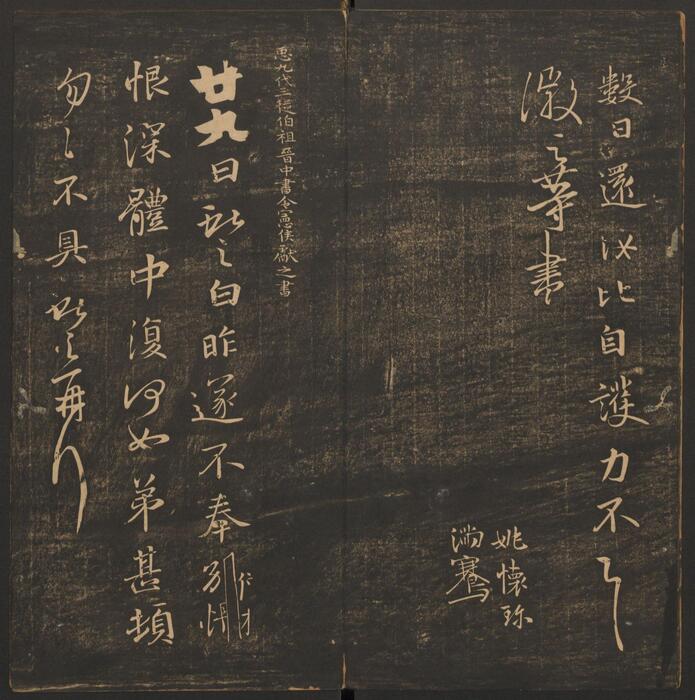 數日還汝比自護力不具
徽之等書
姚懷珍
滿騫
𢘑九代三從伯祖晉中書令憲侯獻之書
廿九日獻之白昨遂不奉別悵
恨深體中復何如弟甚頓
匆々不具獻之再拜